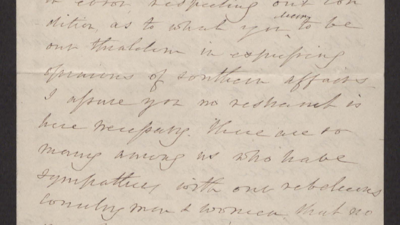 or error respecting our con
dition as to what you deem to be
our thraldom in expressing
opinions of southern affairs.
I assure you no restraint is
here necessary. There are so
many among us who have
sympathies with our rebellious
countrymen & women that no